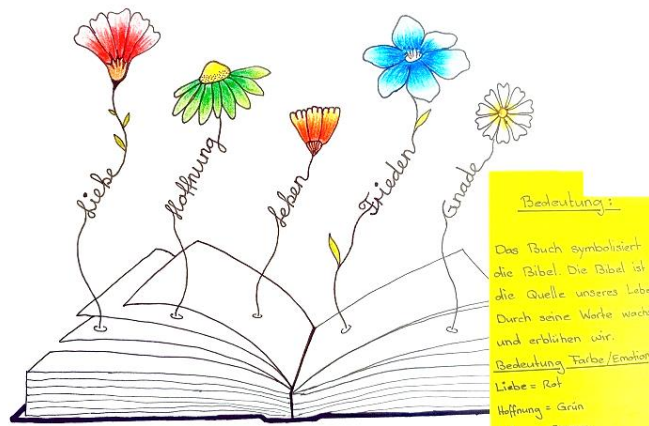 Liebe
Hoffnung
Leben
Frieden
Gnade
Bedeutung:
Das Buch symbolisiert
die Bibel. Die Bibel ist
die Quelle unseres Lebe
Durch seine Worte wach
und erblühen wir.
Bedeutung Farbe/Emotion
Liebe = Rot
Hoffnung = Grün